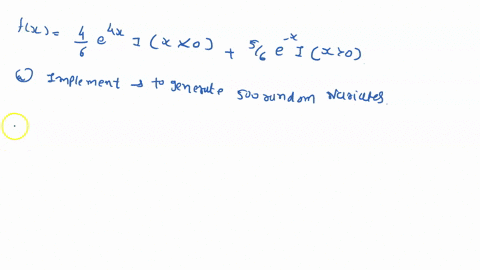 f(x) = 4/6 e^{4x} I (x<0) + 5/6 e^{-x} I (x>0)
a) Implement → to generate 500 random variates.